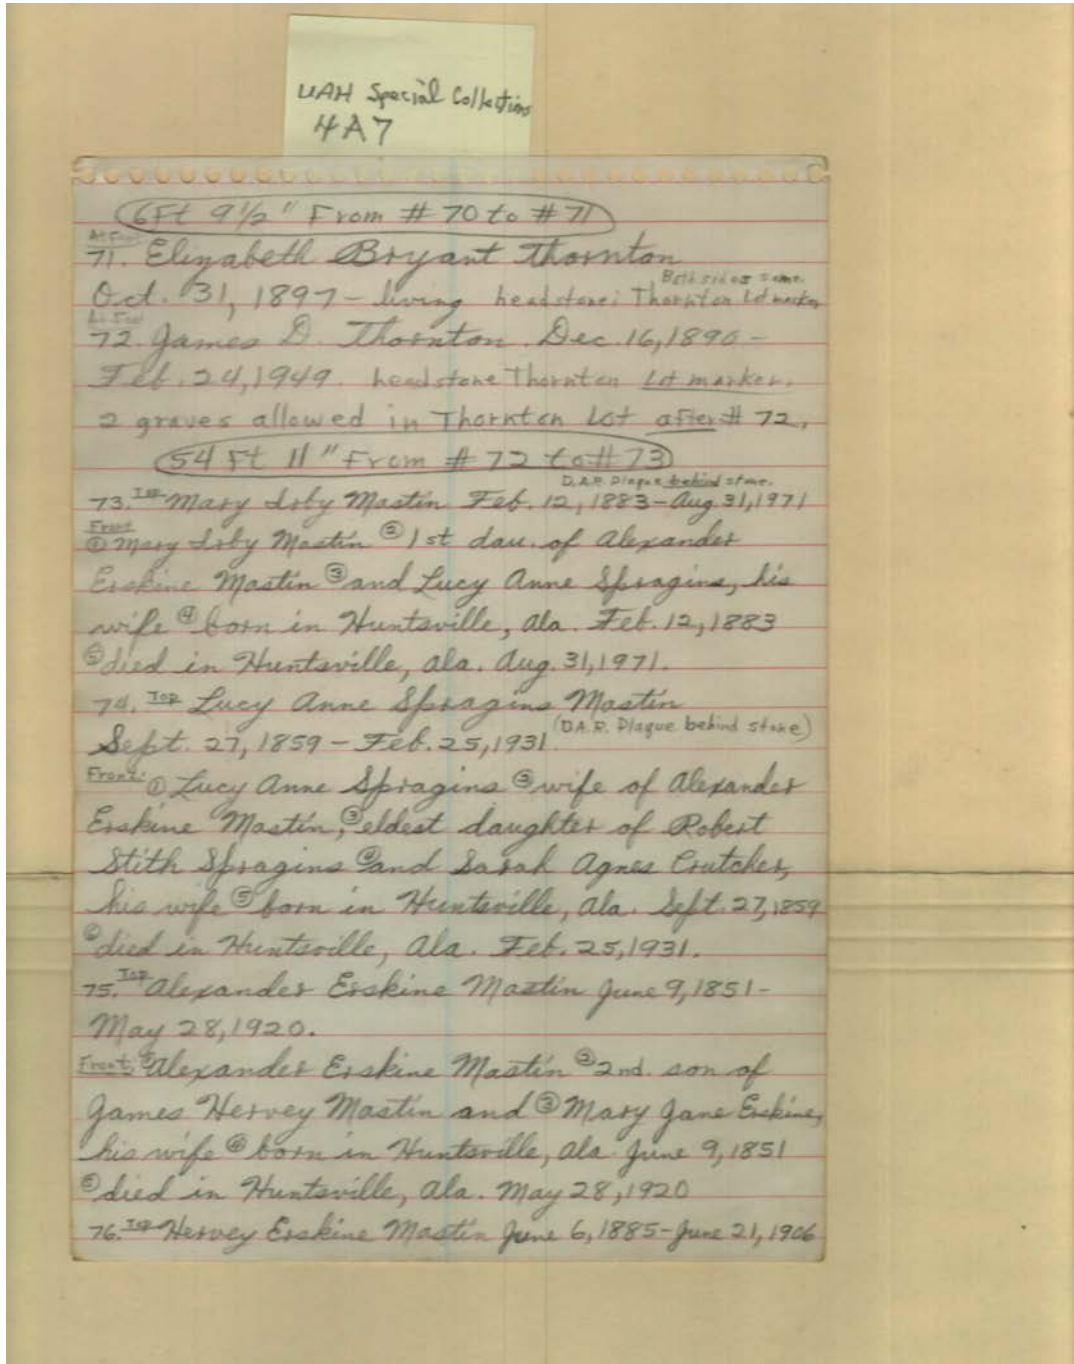 UAH Special Collections
4A7
6Ft 9½" From # 70 to # 71
At Foot
71. Elizabeth Bryant Thornton
Both sides same.
Oct. 31, 1897 – living headstone: Thornton Lot marker
At Foot
72. James D. Thornton Dec. 16, 1890 –
Feb. 24, 1949. headstone Thornton Lot marker.
2 graves allowed in Thornton Lot after # 72.
54 Ft 11" From # 72 to # 73
D.A.R. Plaque behind stone.
73. Top Mary Irby Mastin Feb. 12, 1883 – Aug. 31, 1971
Front
① Mary Irby Mastin ② 1st dau. of Alexander
Erskine Mastin ③ and Lucy Anne Spragins, his
wife ④ born in Huntsville, Ala. Feb. 12, 1883
⑤ died in Huntsville, Ala. Aug. 31, 1971.
74. Top Lucy Anne Spragins Mastin
Sept. 27, 1859 – Feb. 25, 1931 (D.A.R. Plaque behind stone)
Front: ① Lucy Anne Spragins ② wife of Alexander
Erskine Mastin, ③ eldest daughter of Robert
Stith Spragins ④ and Sarah Agnes Crutcher,
his wife ⑤ born in Huntsville, Ala. Sept. 27, 1859
⑥ died in Huntsville, Ala. Feb. 25, 1931.
75. Top Alexander Erskine Mastin June 9, 1851 –
May 28, 1920.
Front: ① Alexander Erskine Mastin ② 2nd. son of
James Hervey Mastin and ③ Mary Jane Erskine,
his wife ④ born in Huntsville, Ala. June 9, 1851
⑤ died in Huntsville, Ala. May 28, 1920
76. Top Hervey Erskine Mastin June 6, 1885 – June 21, 1906